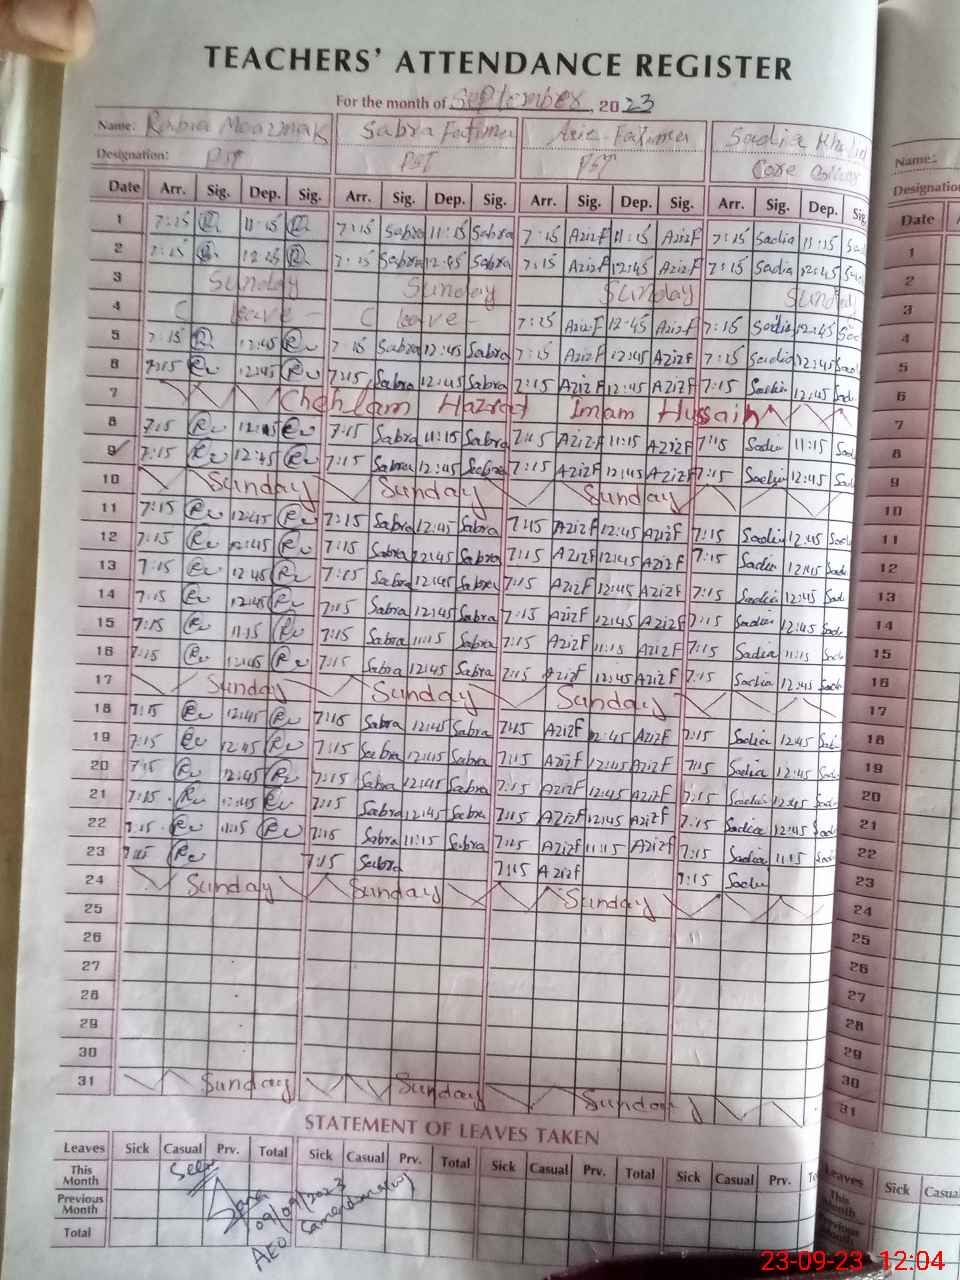 TEACHERS' ATTENDANCE REGISTER
For the month of September, 2023
Name: Rabia Sabra Fatima Fatima Sadia Khalid Name:
Designation: PST PST PST Designation
Date Arr. Sig. Dep. Sig. Arr. Sig. Dep. Sig. Arr. Sig. Dep. Sig. Arr. Sig. Dep. Sig. Date
1 7:15 11:15 7:15 Sabra 11:15 Sabra 7:15 AzizF 11:15 AzizF 7:15 Sadia 11:15 1
2 7:15 12:45 7:15 Sabra 12:45 Sabra 7:15 AzizF 12:45 AzizF 7:15 Sadia 12:45 2
3 Sunday Sunday Sunday Sunday 3
4 C leave - C leave - 7:15 AzizF 12:45 AzizF 7:15 Sadia 12:45 4
5 7:15 12:45 7:15 Sabra 12:45 Sabra 7:15 AzizF 12:45 AzizF 7:15 Sadia 12:45 5
6 7:15 12:45 7:15 Sabra 12:45 Sabra 7:15 AzizF 12:45 AzizF 7:15 Sadia 12:45 6
7 Chehlam Hazrat Imam Hussain 7
8 7:15 7:15 Sabra 11:15 Sabra 7:15 AzizF 11:15 AzizF 7:15 Sadia 11:15 8
9 7:15 12:45 7:15 Sabra 12:45 Sabra 7:15 AzizF 12:45 AzizF 7:15 Sadia 12:45 9
10 Sunday Sunday Sunday 10
11 7:15 12:45 7:15 Sabra 12:45 Sabra 7:15 AzizF 12:45 AzizF 7:15 Sadia 12:45 11
12 7:15 12:45 7:15 Sabra 12:45 Sabra 7:15 AzizF 12:45 AzizF 7:15 Sadia 12:45 12
13 7:15 12:45 7:15 Sabra 12:45 Sabra 7:15 AzizF 12:45 AzizF 7:15 Sadia 12:45 13
14 7:15 12:45 7:15 Sabra 12:45 Sabra 7:15 AzizF 12:45 AzizF 7:15 Sadia 12:45 14
15 7:15 11:15 7:15 Sabra 11:15 Sabra 7:15 AzizF 11:15 AzizF 7:15 Sadia 11:15 15
16 7:15 12:45 7:15 Sabra 12:45 Sabra 7:15 AzizF 12:45 AzizF 7:15 Sadia 12:45 16
17 Sunday Sunday Sunday 17
18 7:15 12:45 7:15 Sabra 12:45 Sabra 7:15 AzizF 12:45 AzizF 7:15 Sadia 12:45 18
19 7:15 12:45 7:15 Sabra 12:45 Sabra 7:15 AzizF 12:45 AzizF 7:15 Sadia 12:45 19
20 7:15 12:45 7:15 Sabra 12:45 Sabra 7:15 AzizF 12:45 AzizF 7:15 Sadia 12:45 20
21 7:15 12:45 7:15 Sabra 12:45 Sabra 7:15 AzizF 12:45 AzizF 7:15 Sadia 12:45 21
22 7:15 11:15 7:15 Sabra 11:15 Sabra 7:15 AzizF 11:15 AzizF 7:15 Sadia 11:15 22
23 7:15 7:15 Sabra 7:15 AzizF 7:15 Sadia 23
24 Sunday Sunday Sunday 24
25 25
26 26
27 27
28 28
29 29
30 30
31 Sunday Sunday Sunday 31
STATEMENT OF LEAVES TAKEN
Leaves Sick Casual Prv. Total Sick Casual Prv. Total Sick Casual Prv. Total Sick Casual Prv. Leaves Sick
This Month Seen This Month
Previous Month 09/09/2023 Previous Month
Total AEO Total
23-09-23 12:04